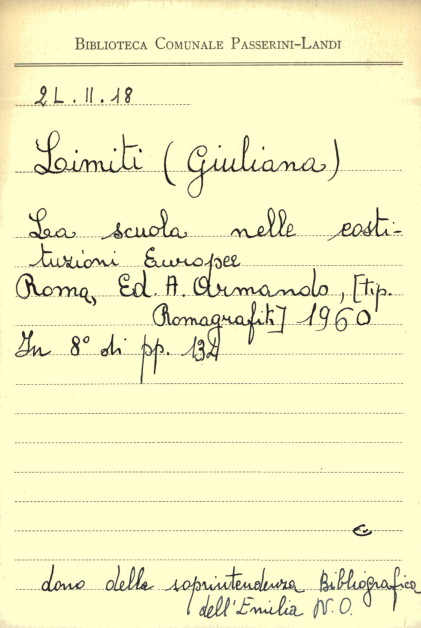 BIBLIOTECA COMUNALE PASSERINI-LANDI
2L.II.18
Limiti (Giuliana)
La scuola nelle costi-
tuzioni Europee
Roma, Ed. A. Armando, [tip.
Romagrafik] 1960
In 8° di pp. 132
C
dono della soprintendenza Bibliografica
dell'Emilia N.O.